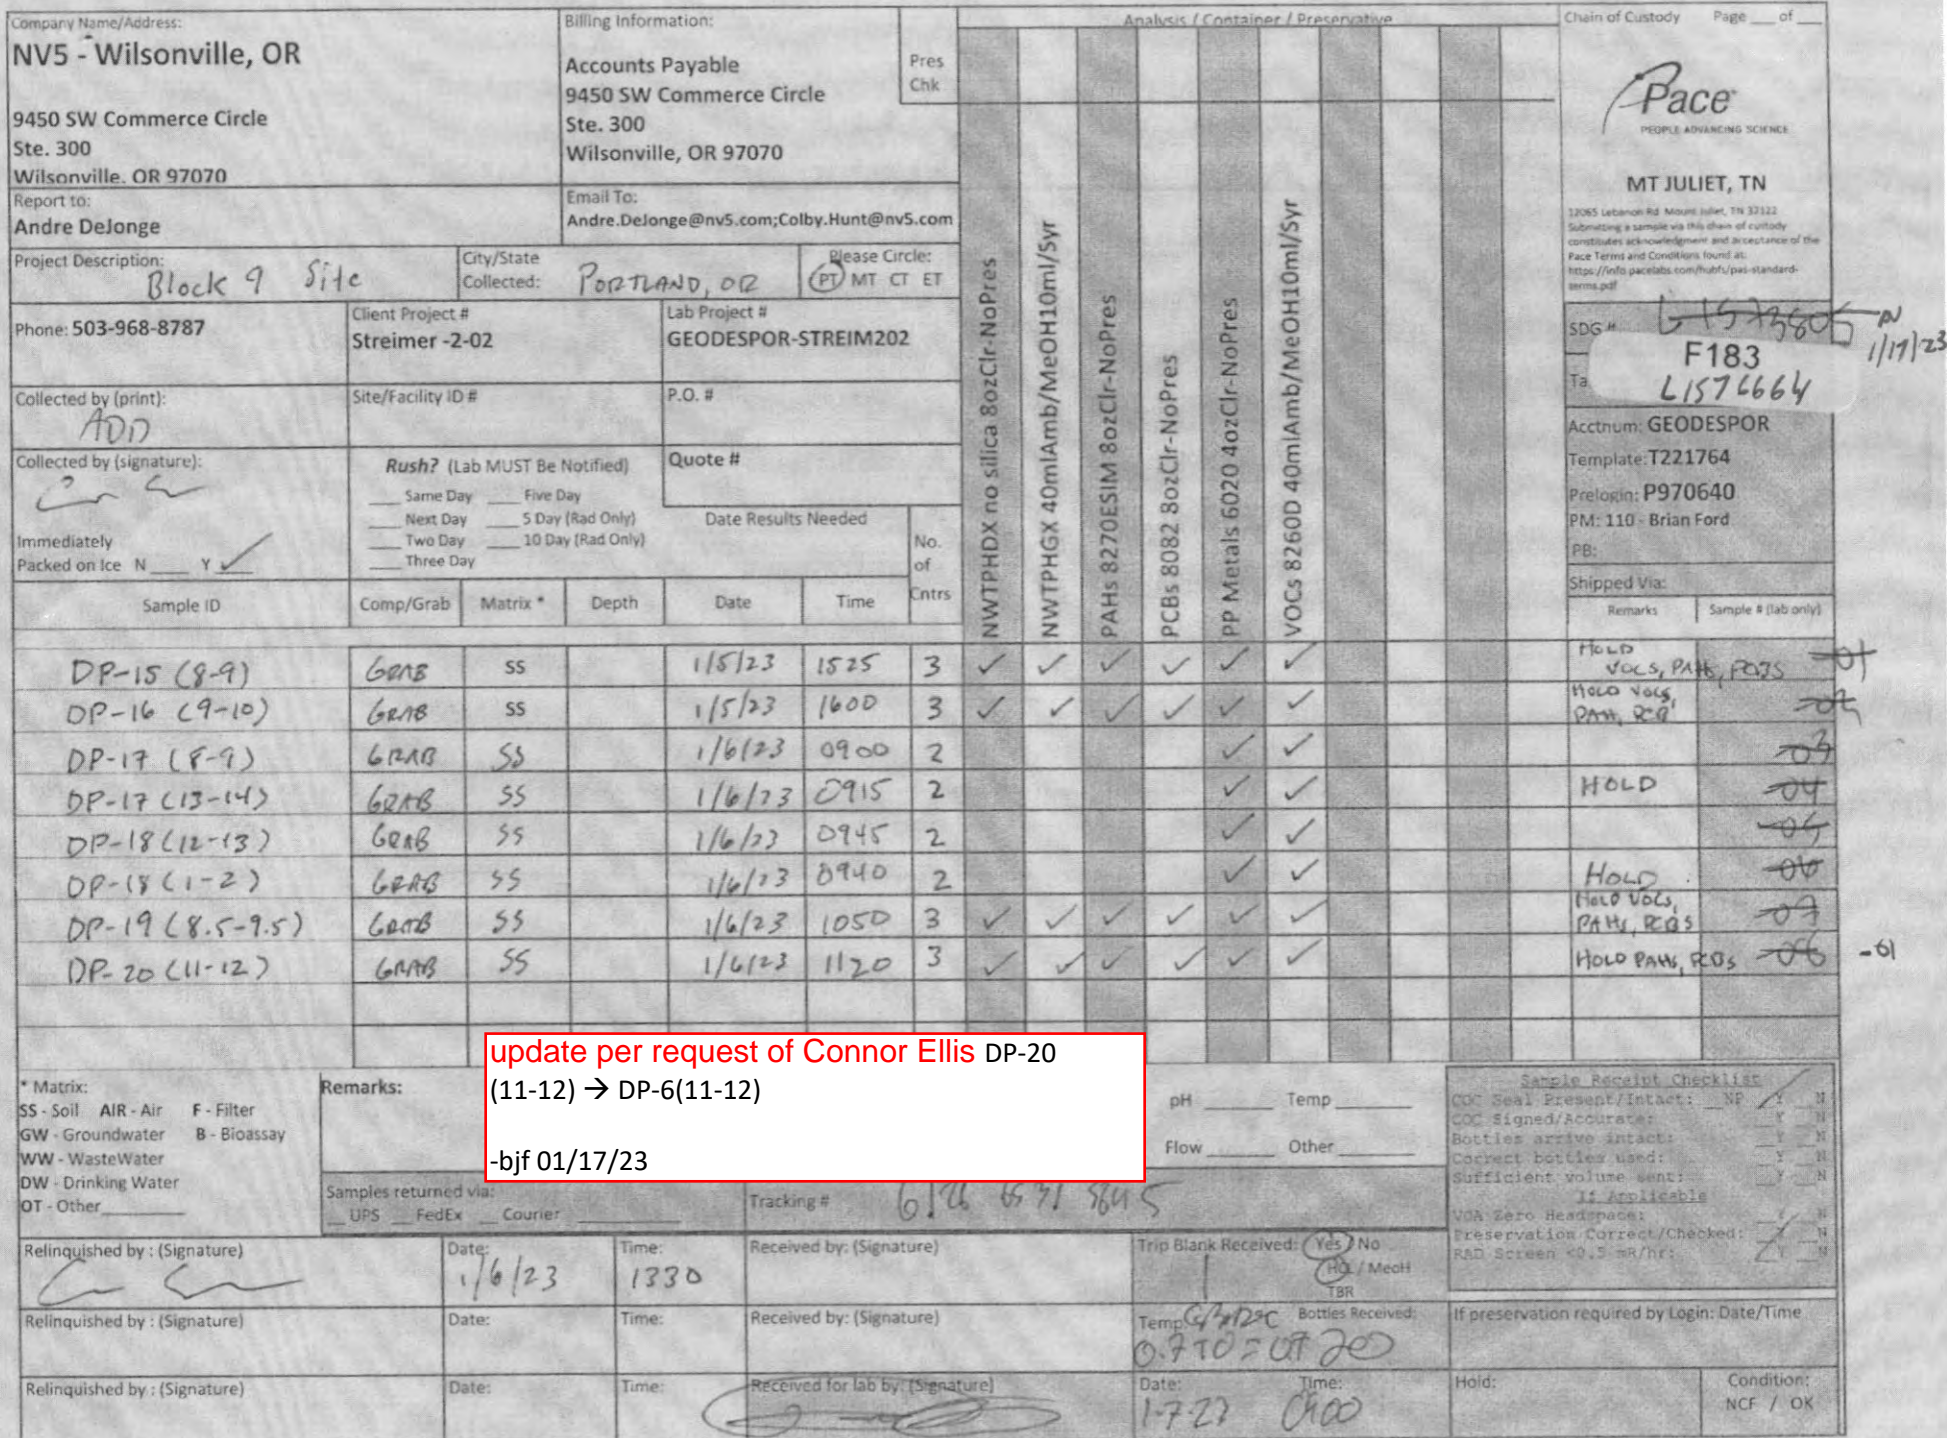 Company Name/Address:
NV5 - Wilsonville, OR
9450 SW Commerce Circle
Ste. 300
Wilsonville, OR 97070
Billing Information:
Accounts Payable
9450 SW Commerce Circle
Ste. 300
Wilsonville, OR 97070
Pres
Chk
Analysis / Container / Preservative
Chain of Custody Page ___ of ___
Pace
PEOPLE ADVANCING SCIENCE
MT JULIET, TN
12065 Lebanon Rd Mount Juliet, TN 37122
Submitting a sample via this chain of custody
constitutes acknowledgment and acceptance of the
Pace Terms and Conditions found at:
https://info.pacelabs.com/hubfs/pas-standard-
terms.pdf
Report to:
Andre DeJonge
Email To:
Andre.DeJonge@nv5.com;Colby.Hunt@nv5.com
Project Description:
Block 9 Site
City/State
Collected: PORTLAND, OR
Please Circle:
PT MT CT ET
Phone: 503-968-8787
Client Project #
Streimer -2-02
Lab Project #
GEODESPOR-STREIM202
Collected by (print):
ADD
Site/Facility ID #
P.O. #
Collected by (signature):
Rush? (Lab MUST Be Notified)
___ Same Day ___ Five Day
___ Next Day ___ 5 Day (Rad Only)
___ Two Day ___ 10 Day (Rad Only)
___ Three Day
Quote #
Date Results Needed
Immediately
Packed on Ice N ___ Y ✓
No.
of
Cntrs
NWTPHDX no silica 8ozClr-NoPres
NWTPHGX 40mlAmb/MeOH10ml/Syr
PAHs 8270ESIM 8ozClr-NoPres
PCBs 8082 8ozClr-NoPres
PP Metals 6020 4ozClr-NoPres
VOCs 8260D 40mlAmb/MeOH10ml/Syr
SDG # L1573805
1/17/23
F183
L1576664
Ta
Acctnum: GEODESPOR
Template:T221764
Prelogin: P970640
PM: 110 - Brian Ford
PB:
Shipped Via:
Remarks Sample # (lab only)
Sample ID Comp/Grab Matrix * Depth Date Time
DP-15 (8-9) GRAB SS 1/5/23 1525 3 ✓ ✓ ✓ ✓ ✓ ✓ HOLD VOCS, PAHS, PCBS -01
DP-16 (9-10) GRAB SS 1/5/23 1600 3 ✓ ✓ ✓ ✓ ✓ ✓ HOLD VOCS, PAH, PCB -02
DP-17 (8-9) GRAB SS 1/6/23 0900 2 ✓ ✓ -03
DP-17 (13-14) GRAB SS 1/6/23 0915 2 ✓ ✓ HOLD -04
DP-18 (12-13) GRAB SS 1/6/23 0945 2 ✓ ✓ -05
DP-18 (1-2) GRAB SS 1/6/23 0940 2 ✓ ✓ HOLD -06
DP-19 (8.5-9.5) GRAB SS 1/6/23 1050 3 ✓ ✓ ✓ ✓ ✓ ✓ HOLD VOCS, PAHS, PCBS -07
DP-20 (11-12) GRAB SS 1/6/23 1120 3 ✓ ✓ ✓ ✓ ✓ ✓ HOLD PAHS, PCBS -01
update per request of Connor Ellis DP-20
(11-12) → DP-6(11-12)
-bjf 01/17/23
* Matrix:
SS - Soil AIR - Air F - Filter
GW - Groundwater B - Bioassay
WW - WasteWater
DW - Drinking Water
OT - Other
Remarks:
pH ___ Temp ___
Flow ___ Other ___
Samples returned via:
__ UPS __ FedEx __ Courier
Tracking #
Sample Receipt Checklist
COC Seal Present/Intact: __NP __Y __N
COC Signed/Accurate: __Y __N
Bottles arrive intact: __Y __N
Correct bottles used: __Y __N
Sufficient volume sent: __Y __N
If Applicable
VOA Zero Headspace: __Y __N
Preservation Correct/Checked: __Y __N
RAD Screen <0.5 mR/hr: __Y __N
Relinquished by : (Signature)
Date: 1/6/23
Time: 1330
Received by: (Signature)
Trip Blank Received: Yes / No
HCL / MeoH
TBR
Relinquished by : (Signature)
Date:
Time:
Received by: (Signature)
Temp: °C Bottles Received:
20
If preservation required by Login: Date/Time
Relinquished by : (Signature)
Date:
Time:
Received for lab by: (Signature)
Date: 1-7-23
Time: 0900
Hold:
Condition:
NCF / OK